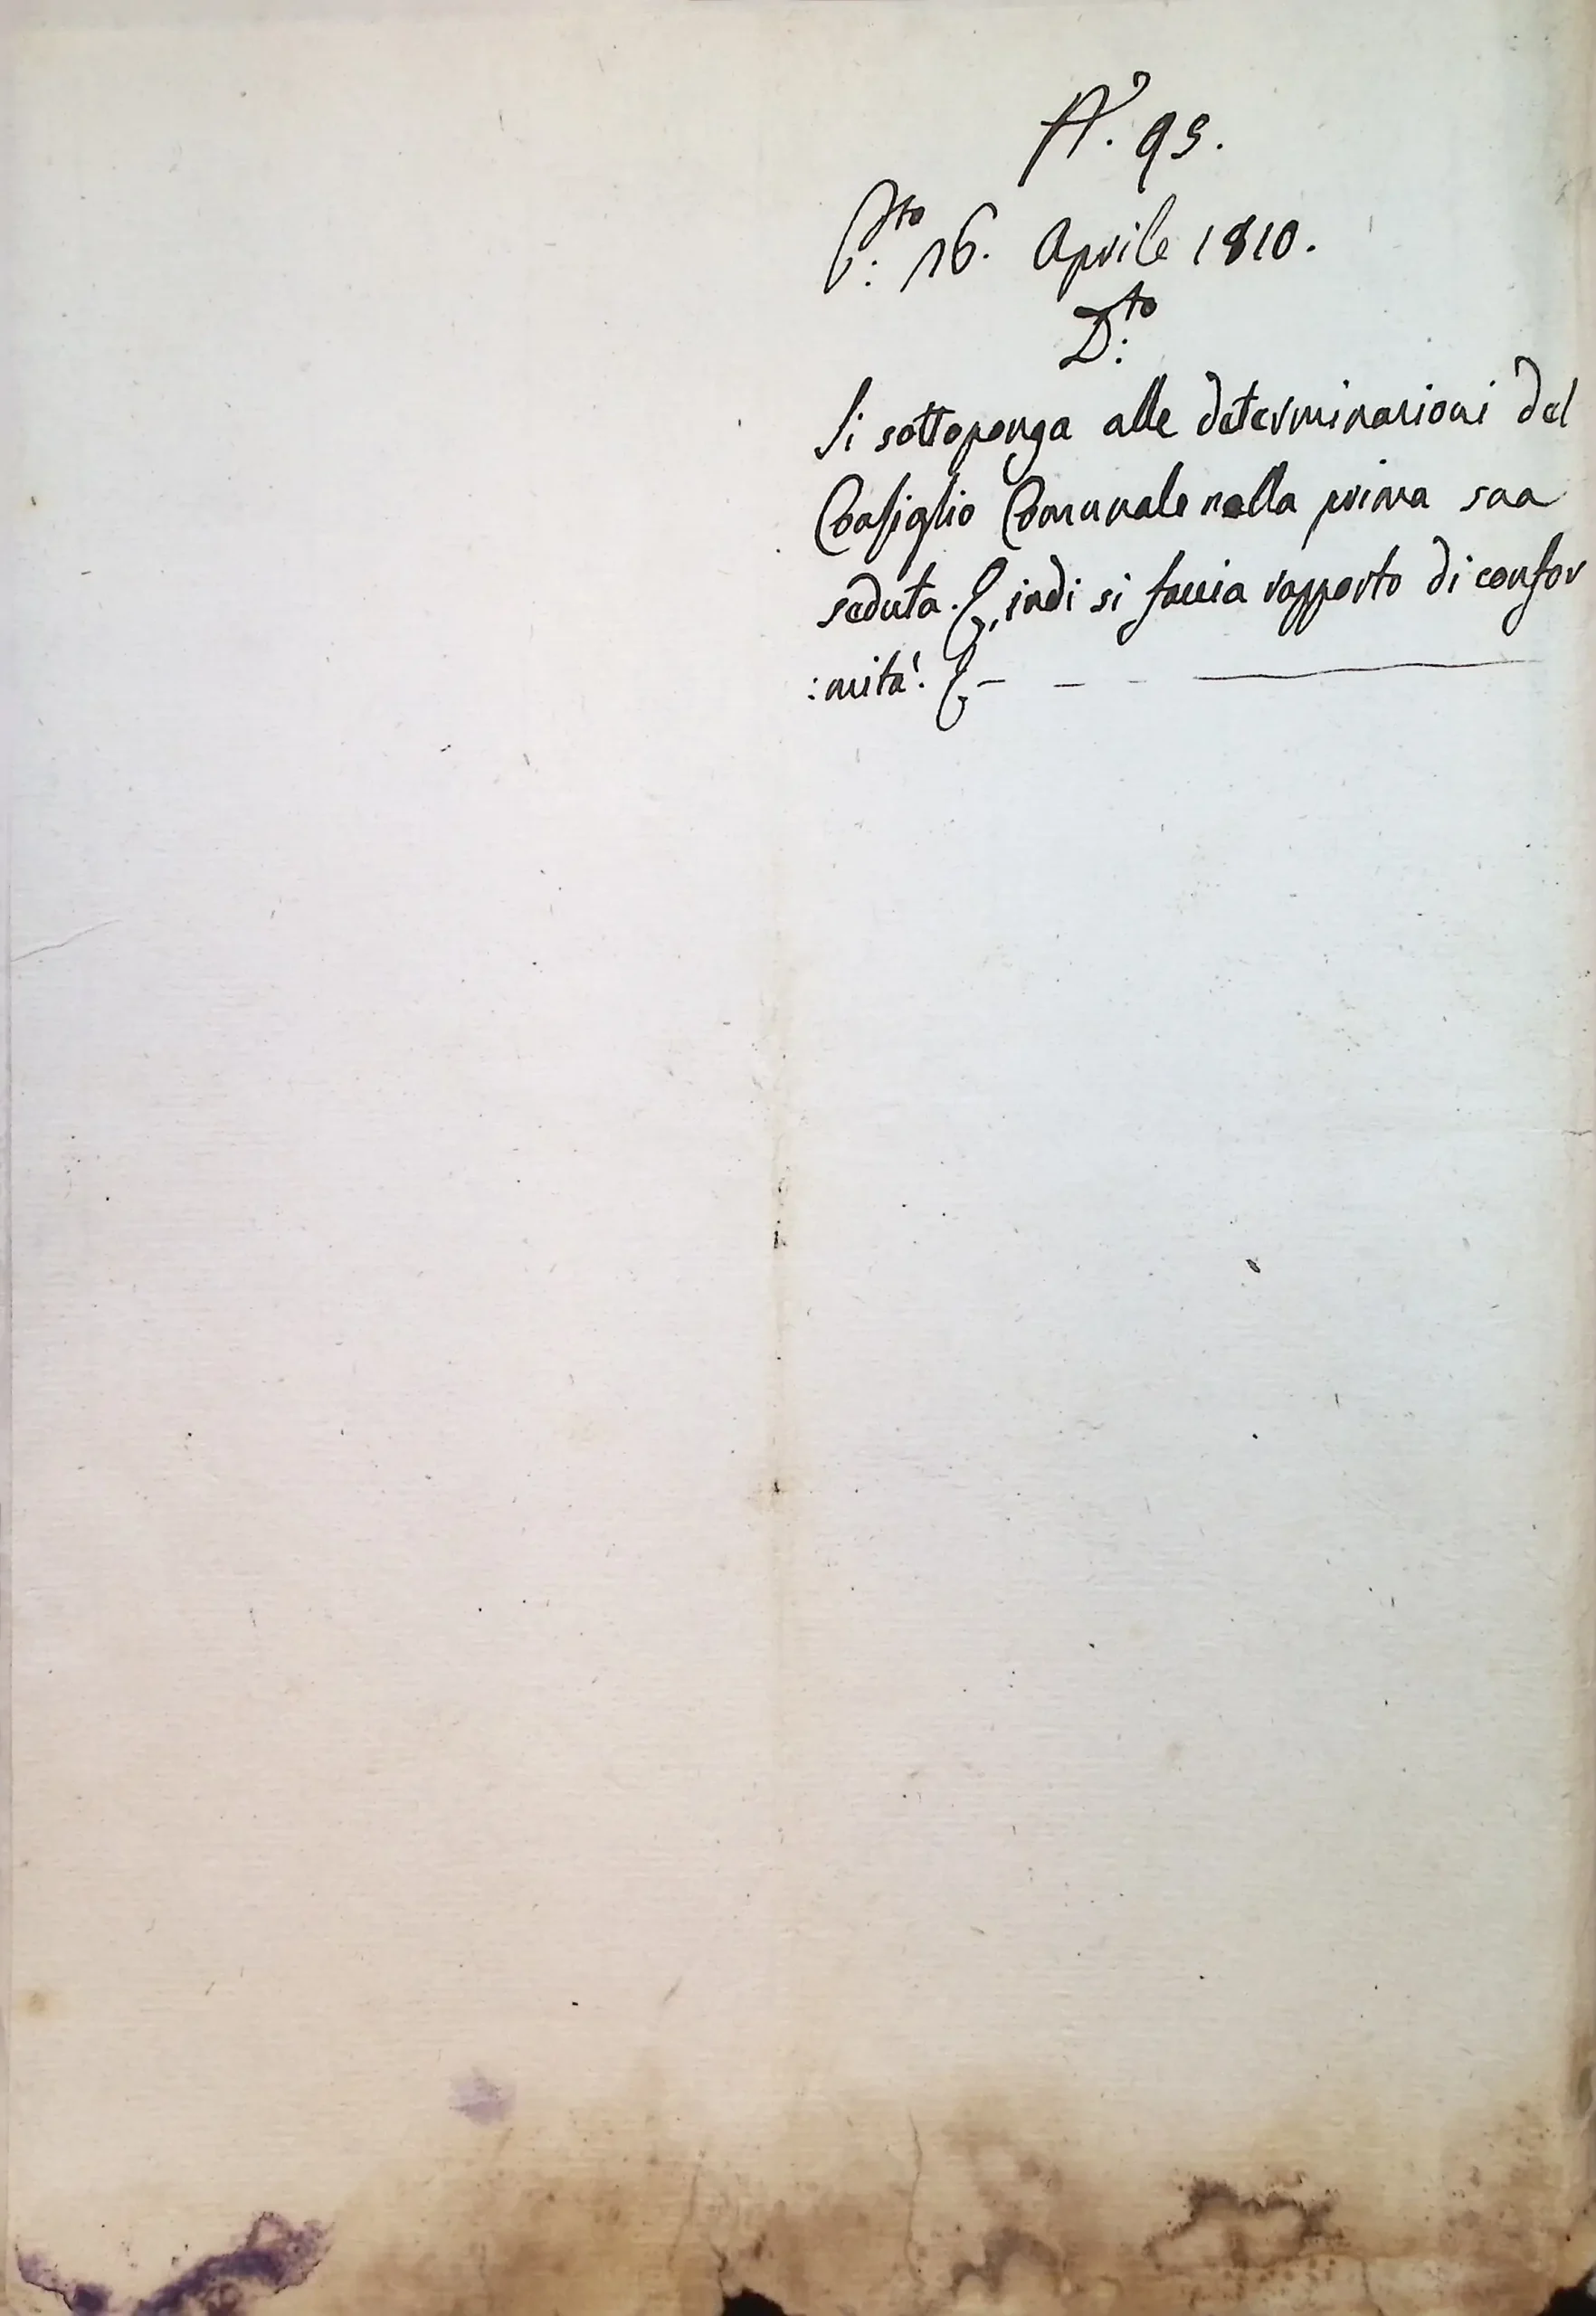 N.° 99.
P.to 16. Aprile 1810.
D.to
Si sottoponga alle determinazioni del
Consiglio Comunale nella prima sua
seduta. E, indi si faccia rapporto di confor
:mità.